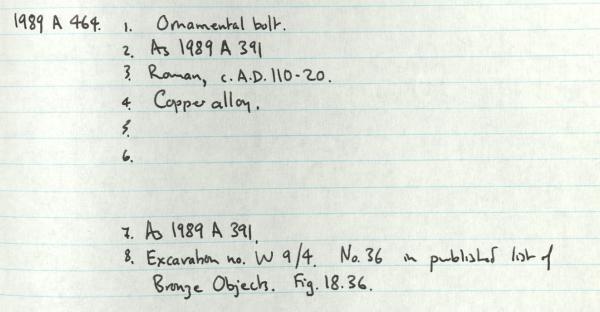 1989 A 464. 1. Ornamental bolt.
2. As 1989 A 391
3. Roman, c. A.D. 110-20.
4. Copper alloy.
5.
6.
7. As 1989 A 391.
8. Excavation no. W 9/4. No. 36 in published list of
Bronze Objects. Fig. 18.36.